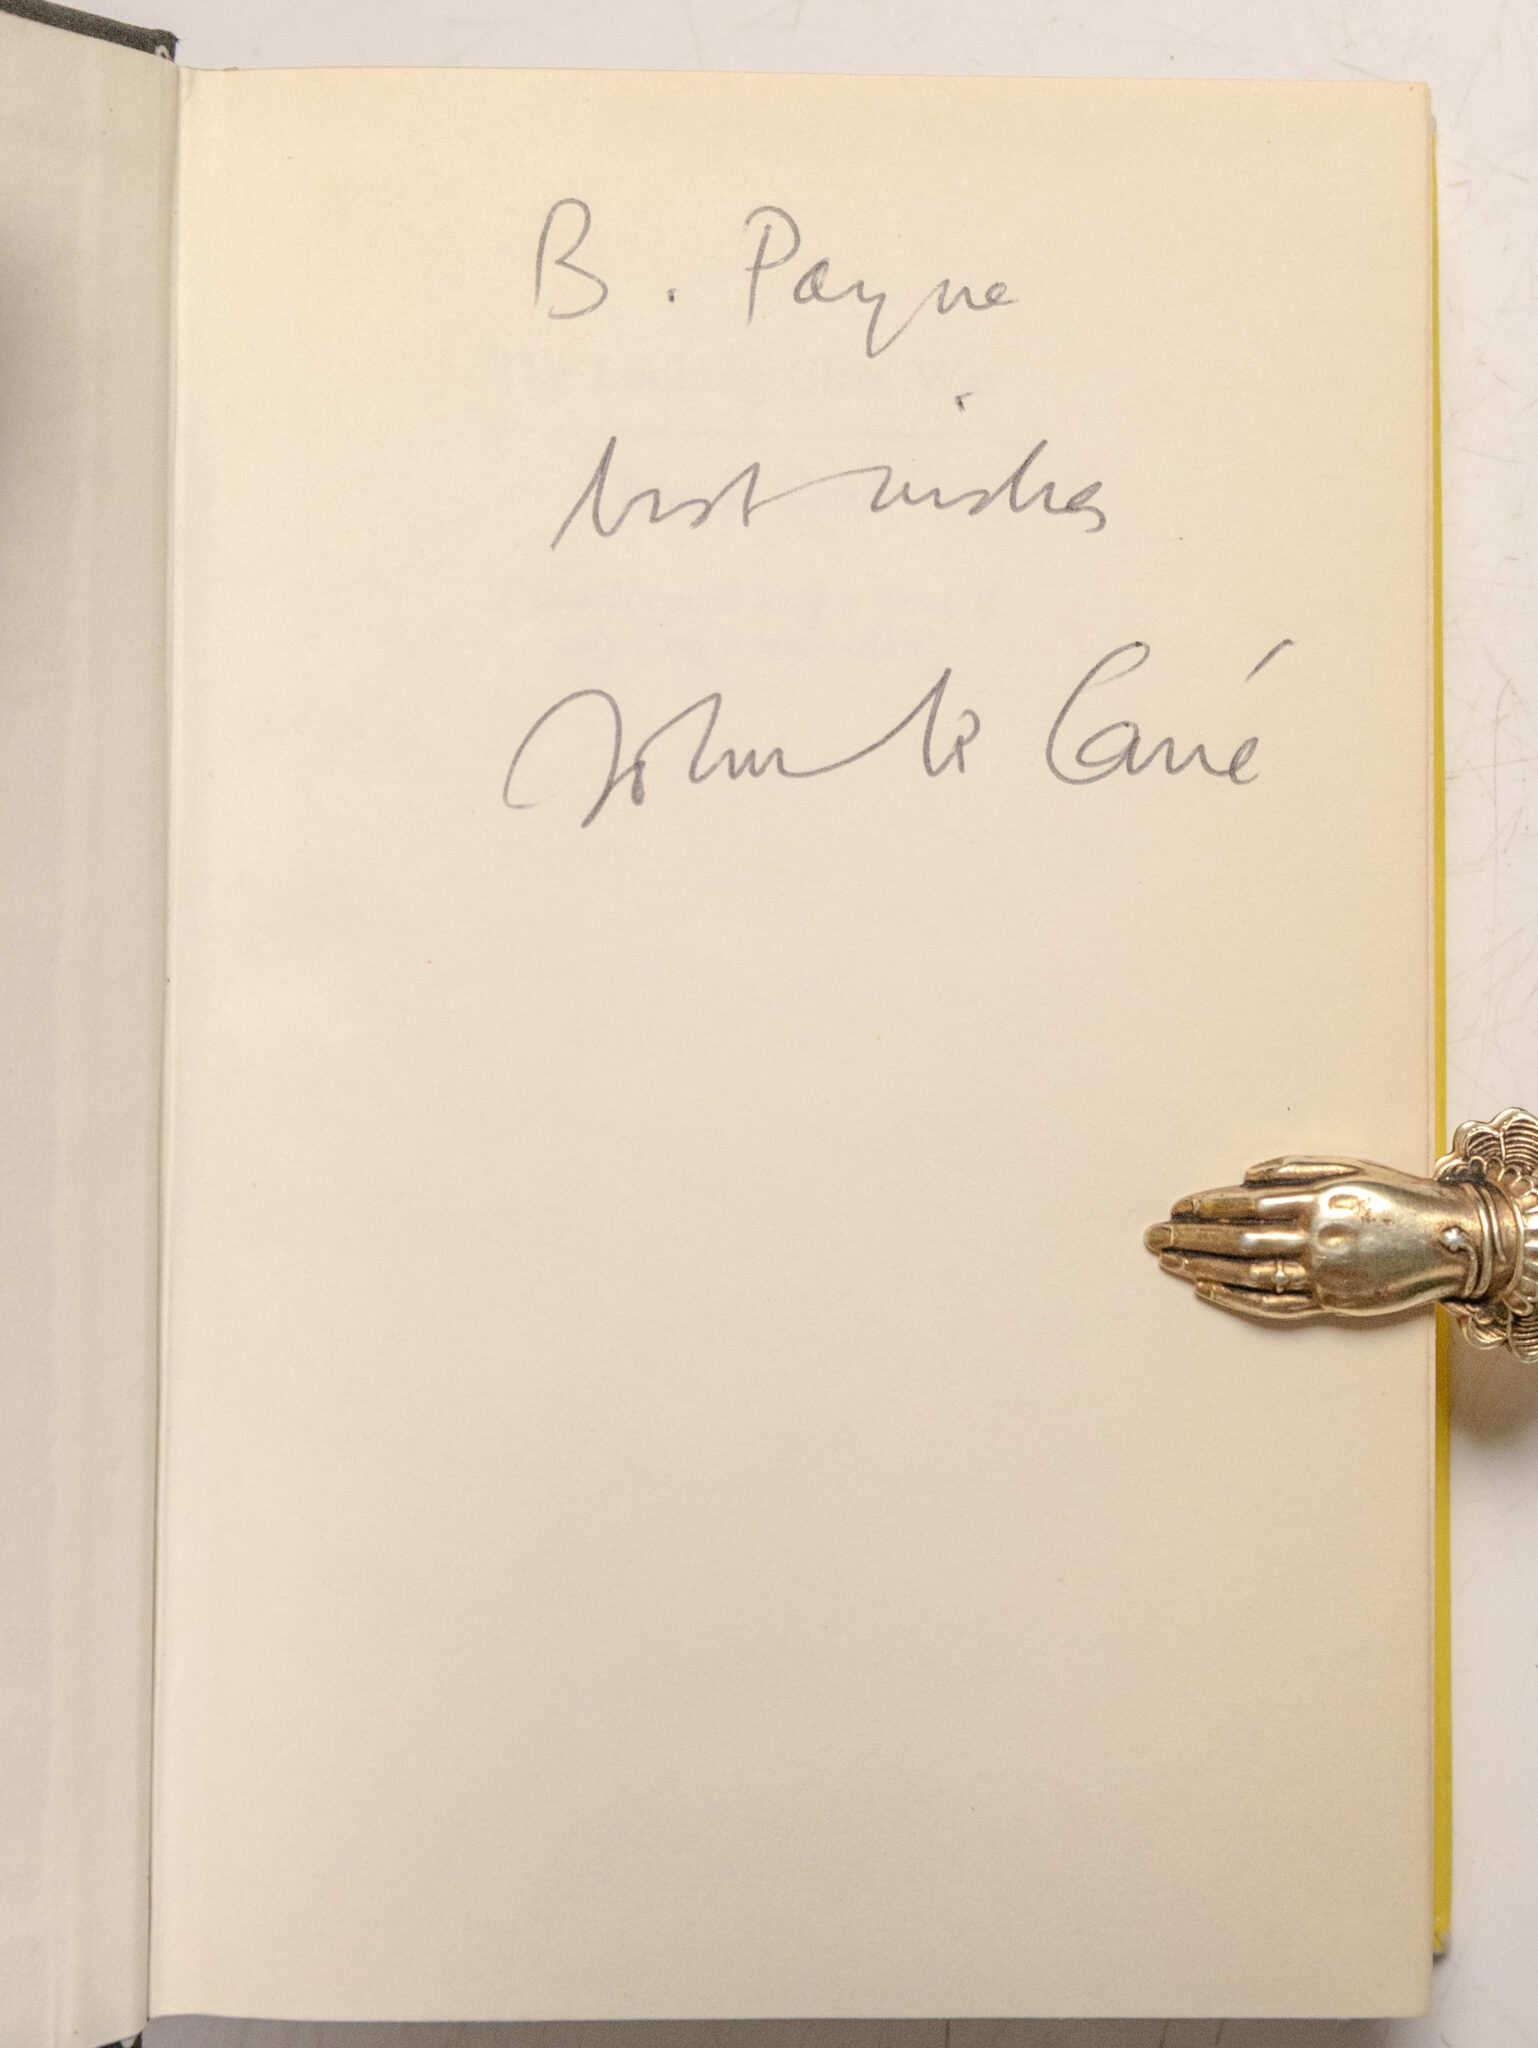 B. Payne
best wishes
John le Carré